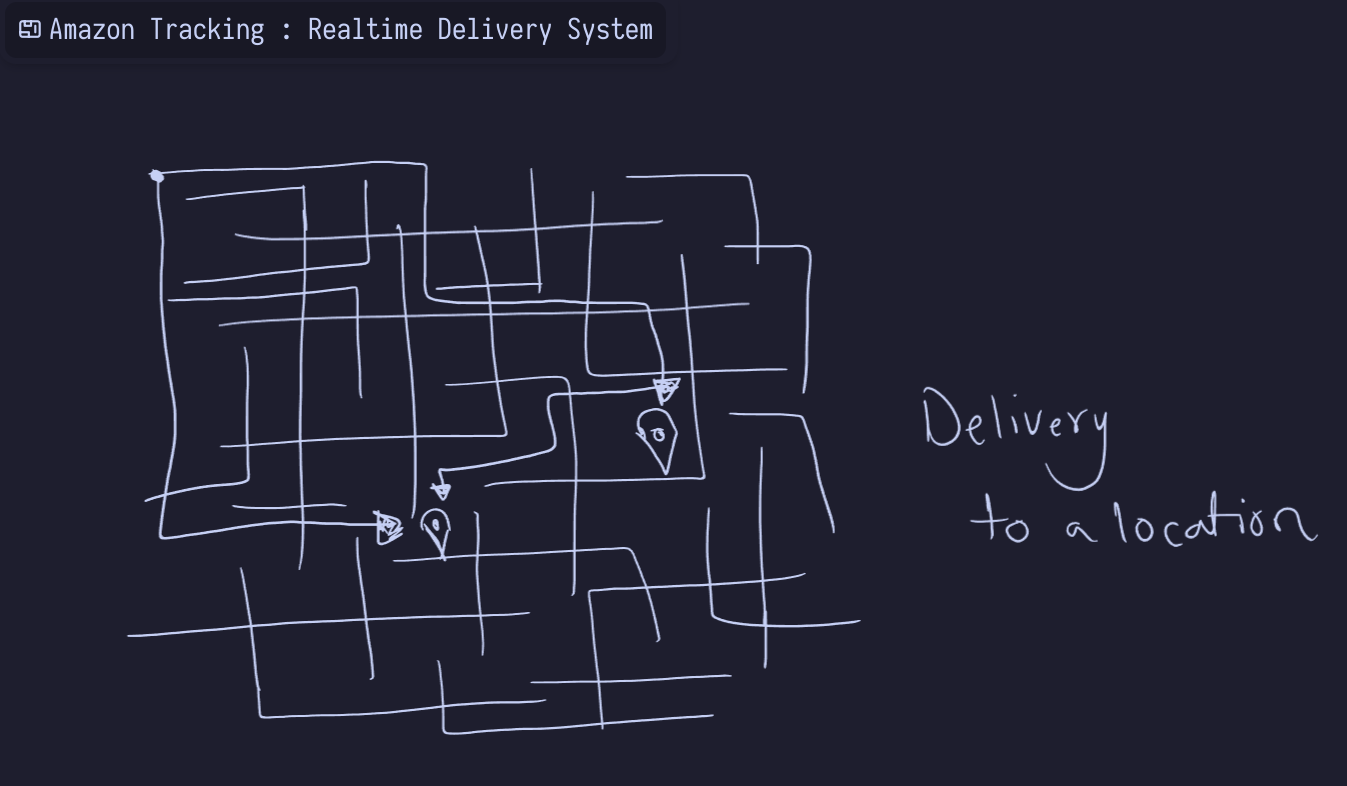 Amazon Tracking : Realtime Delivery System
Delivery
to a location